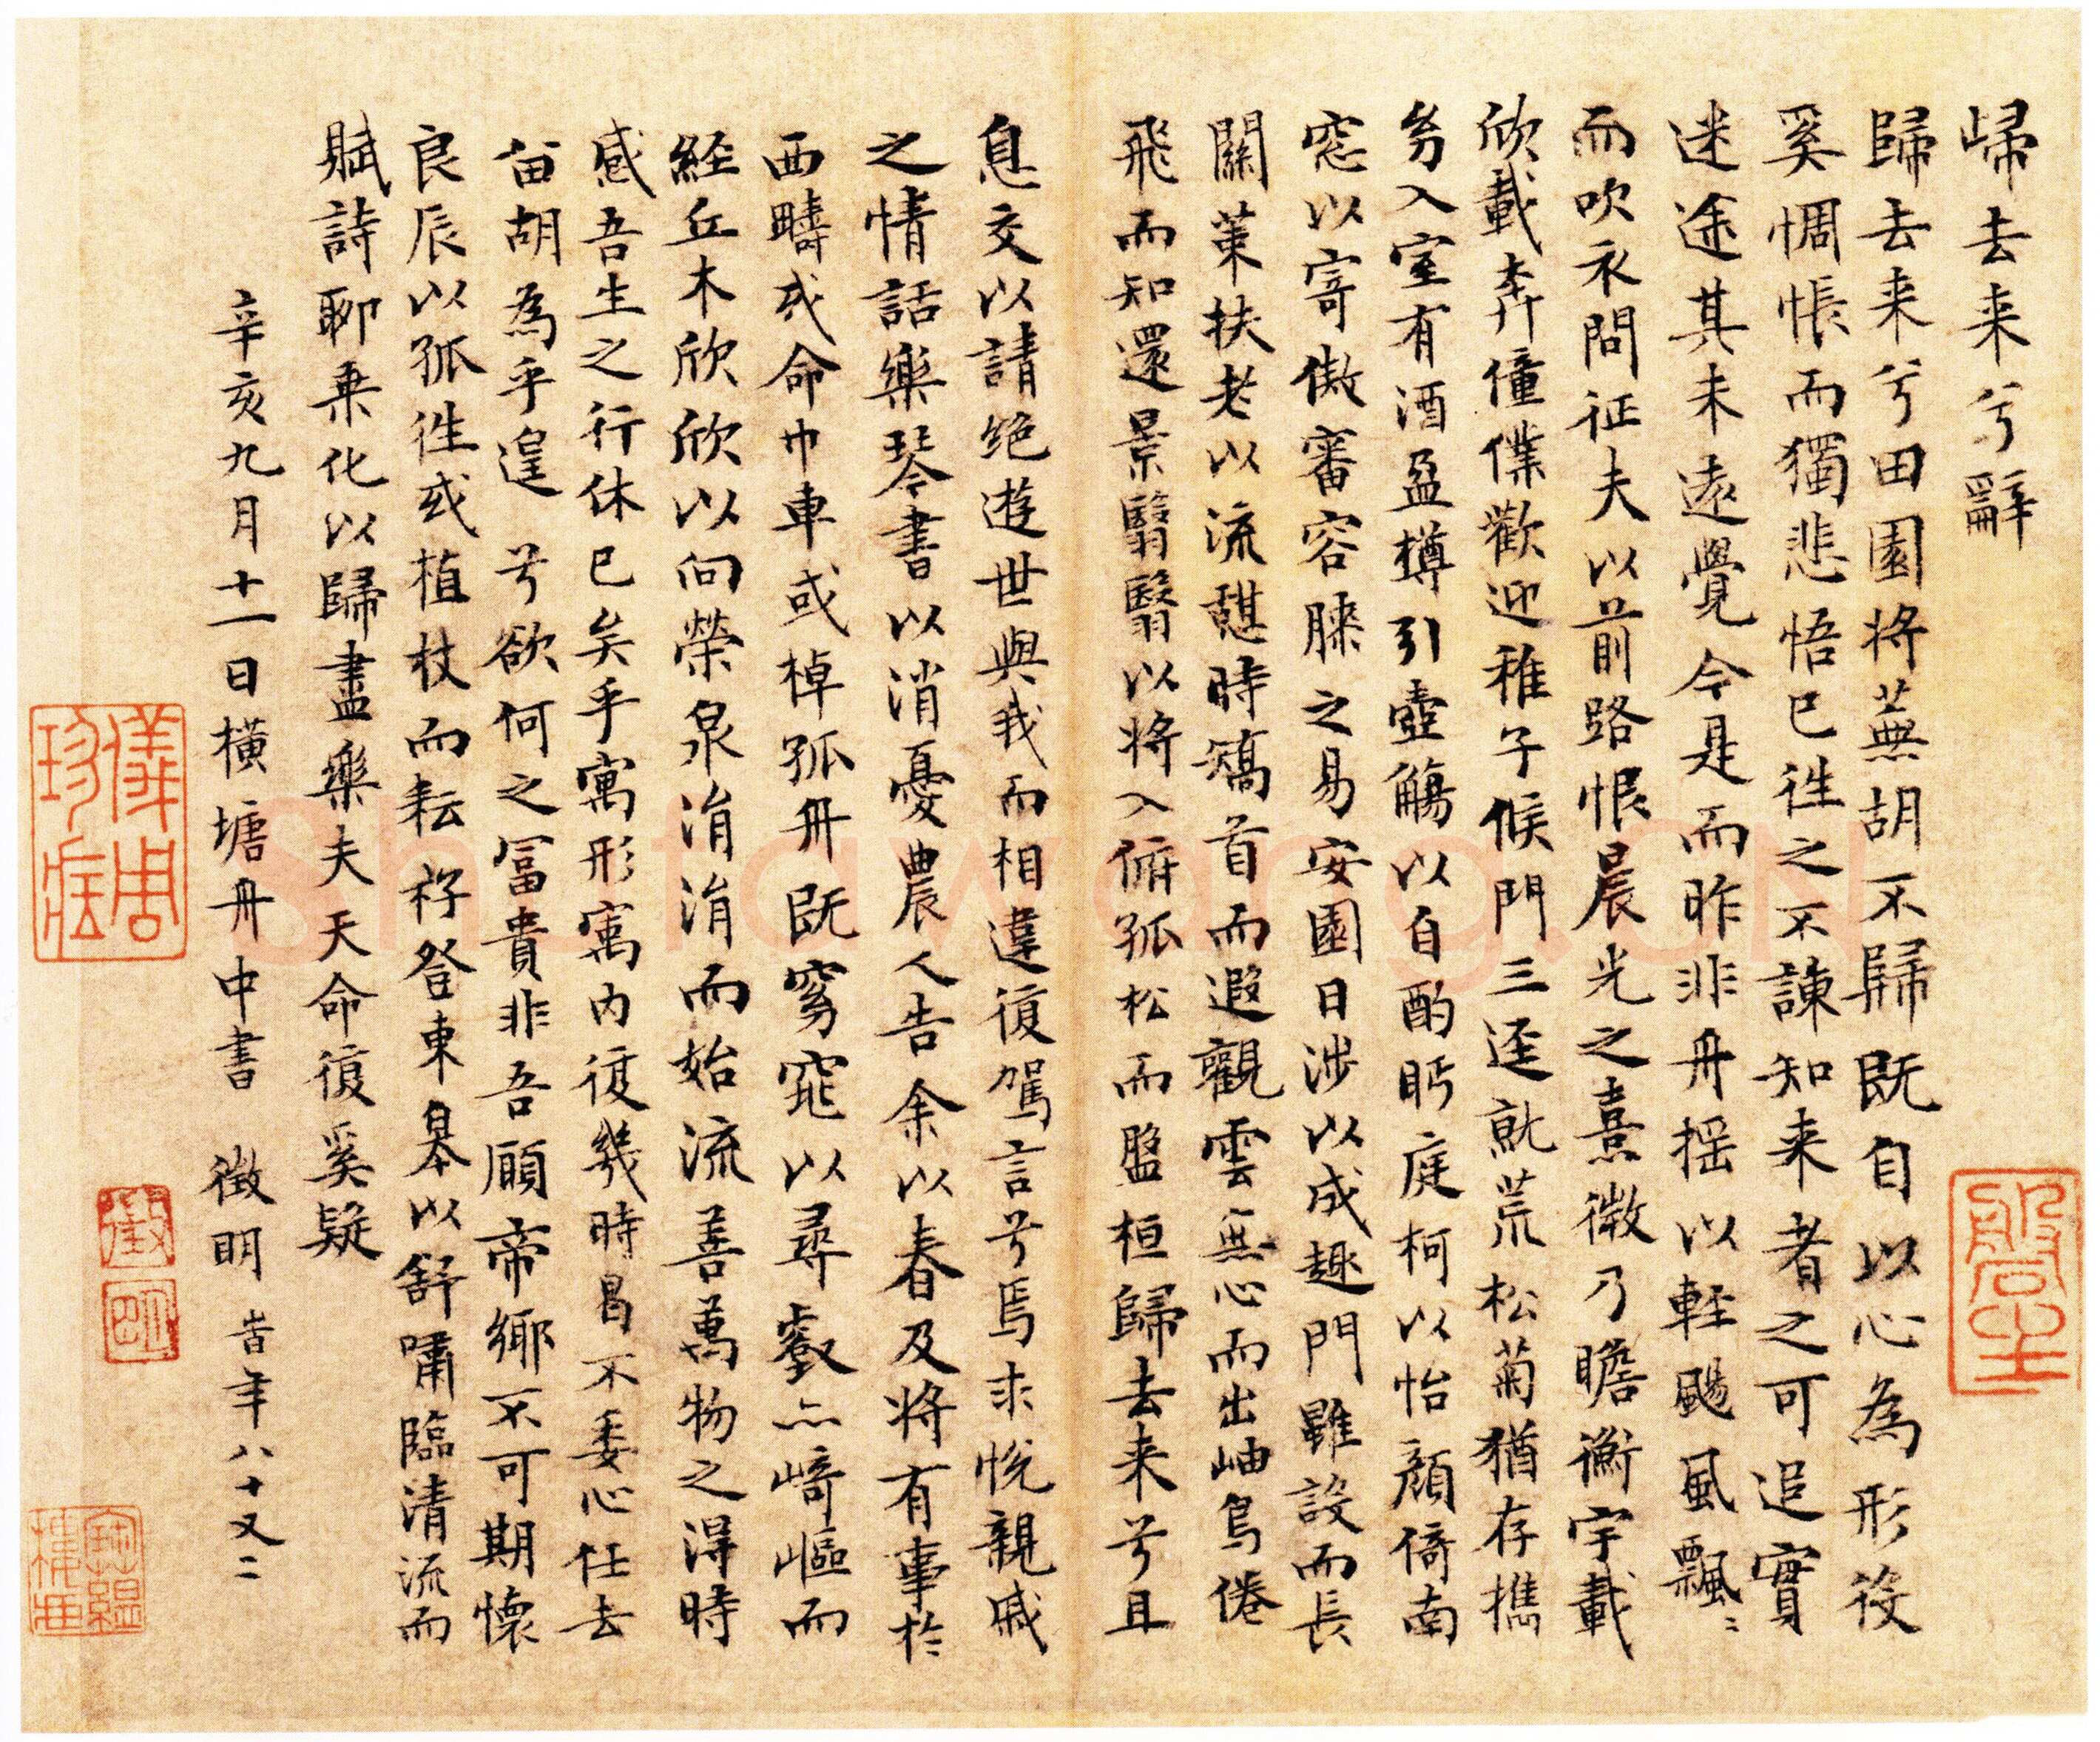 歸去来兮辭
歸去来兮田園将蕪胡不歸既自以心為形役
奚惆悵而獨悲悟已往之不諫知来者之可追實
迷途其未遠覺今是而昨非舟摇以輕颺風飄〻
而吹衣問征夫以前路恨晨光之熹微乃瞻衡宇載
欣載奔僮僕歡迎稚子候門三逕就荒松菊猶存攜
幼入室有酒盈樽引壺觴以自酌眄庭柯以怡顔倚南
窓以寄傲審容膝之易安園日涉以成趣門雖設而長
關策扶老以流憩時矯首而遐觀雲無心而出岫鳥倦
飛而知還景翳翳以将入俯孤松而盤桓歸去来兮且
息交以請絶遊世與我而相違復駕言兮焉求悦親戚
之情話樂琴書以消憂農人告余以春及将有事於
西疇或命巾車或棹孤舟既窈窕以尋壑亦崎嶇而
経丘木欣欣以向榮泉涓涓而始流善萬物之得時
感吾生之行休已矣乎寓形寓内復幾時曷不委心任去
留胡為乎遑兮欲何之冨貴非吾願帝鄉不可期懷
良辰以孤往或植杖而耘耔登東皋以舒嘯臨清流而
賦詩聊乗化以歸盡樂夫天命復奚疑
辛亥九月十一日橫塘舟中書 徴明 旹年八十又二
儀周珍藏
徵明